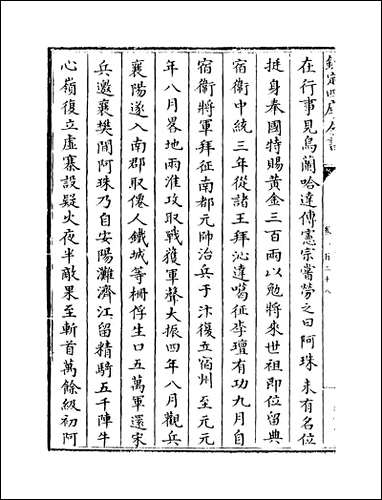 欽定四庫全書
卷一百二十八
在行事見烏蘭哈達傳憲宗嘗勞之曰阿珠未有名位
挺身奉國特賜黃金三百兩以勉將來世祖即位留典
宿衞中統三年從諸王拜沁達噶征李璮有功九月自
宿衞將軍拜征南都元帥治兵于汴復立宿州至元元
年八月畧地兩淮攻取戰獲軍聲大振四年八月觀兵
襄陽遂入南郡取僊人鐵城等柵俘生口五萬軍還宋
兵邀襄樊間阿珠乃自安陽灘濟江留精騎五千陣牛
心嶺復立虛寨設疑火夜半敵果至斬首萬餘級初阿